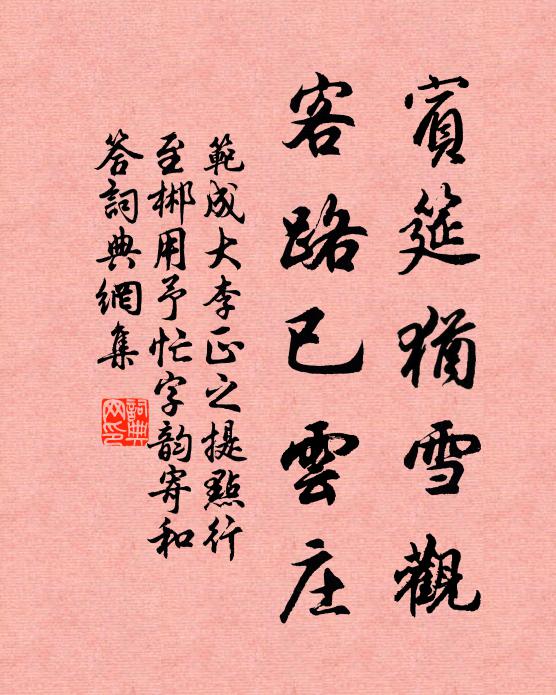 賓筵猶雪觀
客路已雲庄
範成大李正之提點行
至郴用予忙字韵寄和
答詞典網集
詞典
网印